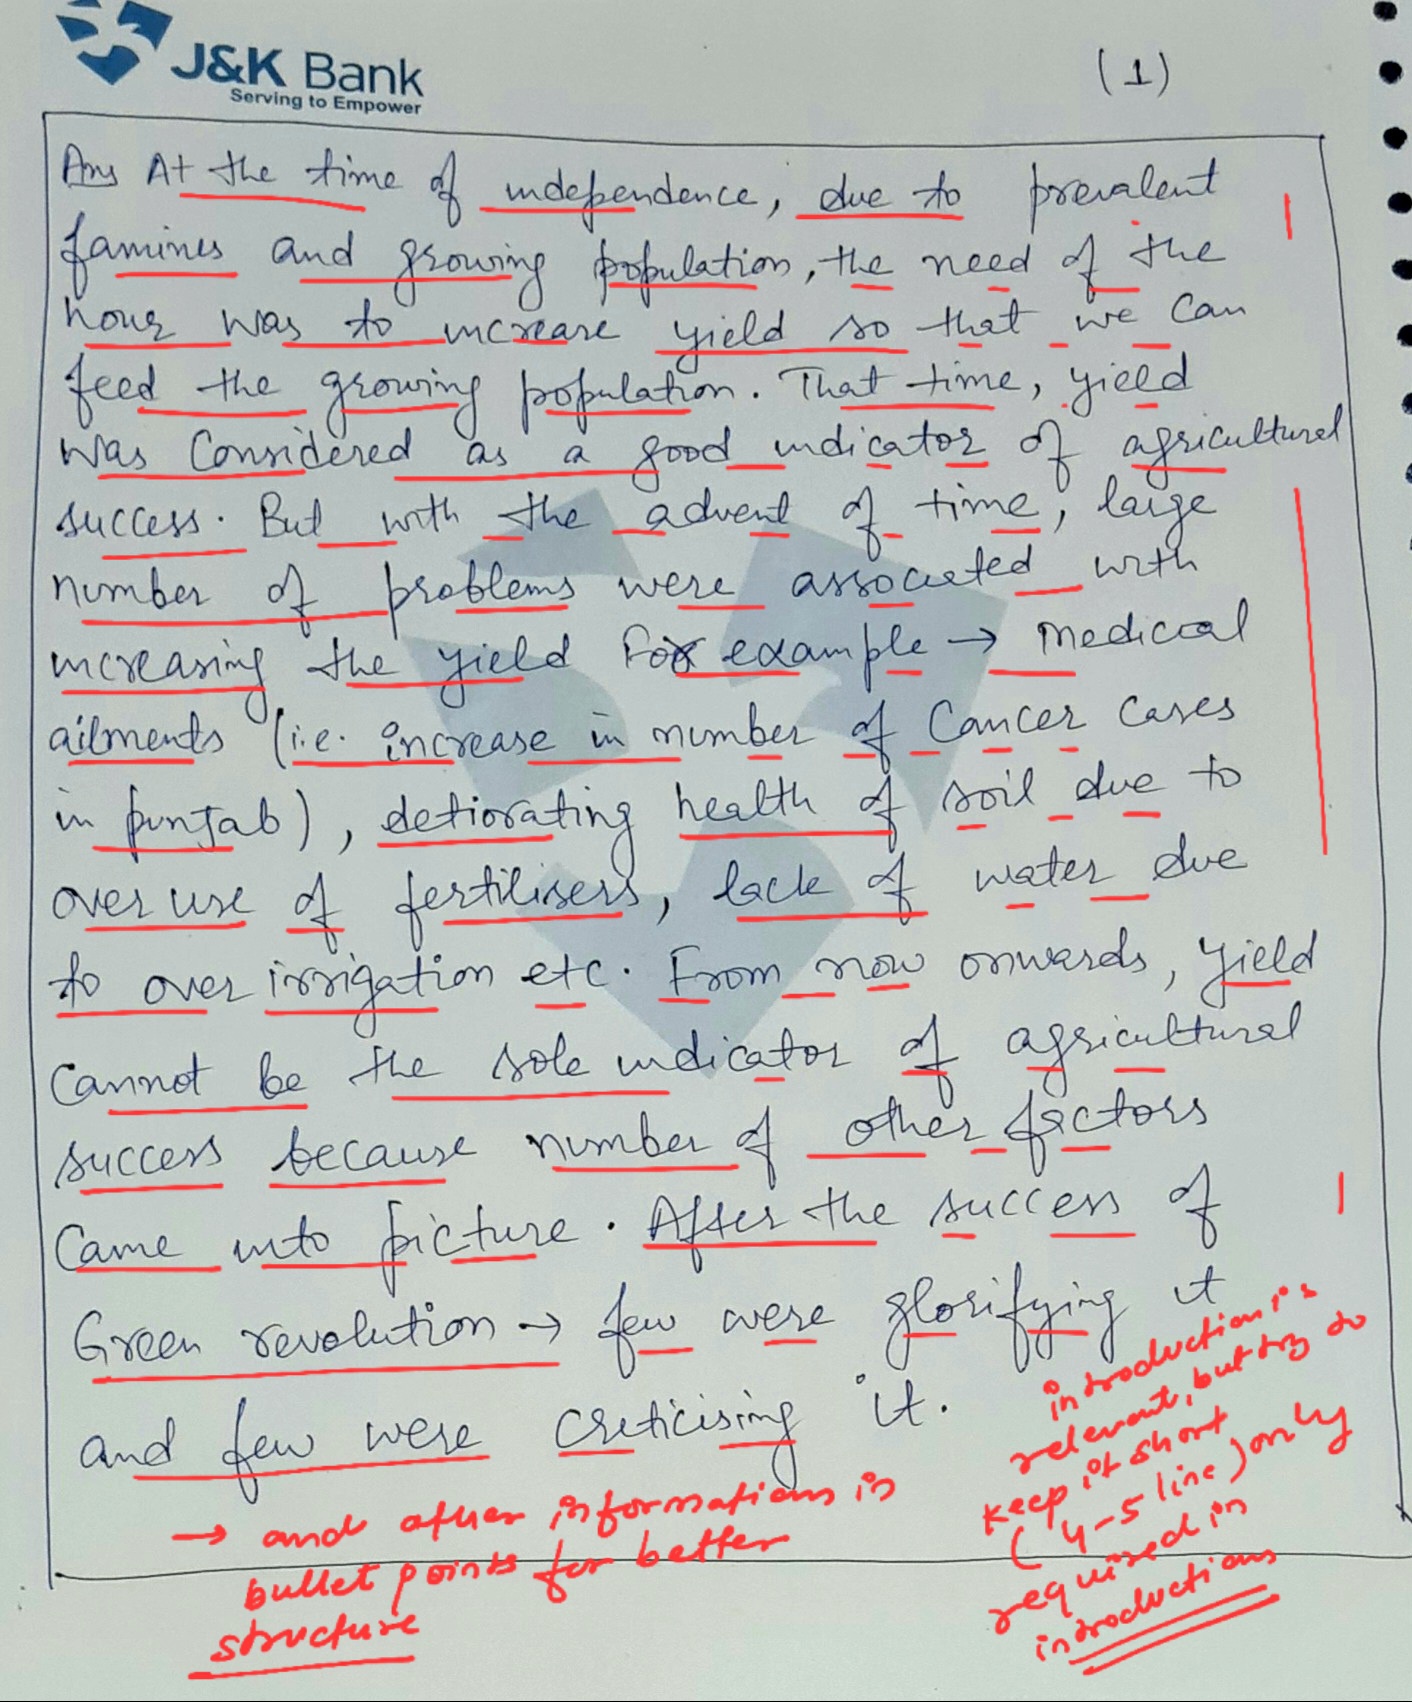 J&K Bank
Serving to Empower
(1)
Ans At the time of independence, due to prevalent
famines and growing population, the need of the
hour was to increase yield so that we can
feed the growing population. That time, yield
was considered as a good indicator of agricultural
success. But with the advent of time, large
number of problems were associated with
increasing the yield For example → medical
ailments (i.e. increase in number of Cancer cases
in punjab), detiorating health of soil due to
over use of fertilisers, lack of water due
to over irrigation etc. From now onwards, yield
cannot be the sole indicator of agricultural
success because number of other factors
came into picture. After the success of
Green revolution → few were glorifying it
and few were creticising it.
introduction is
relevant, but try to
keep it short
(4-5 line) only
required in
introductions
→ and other informations in
bullet points for better
structure